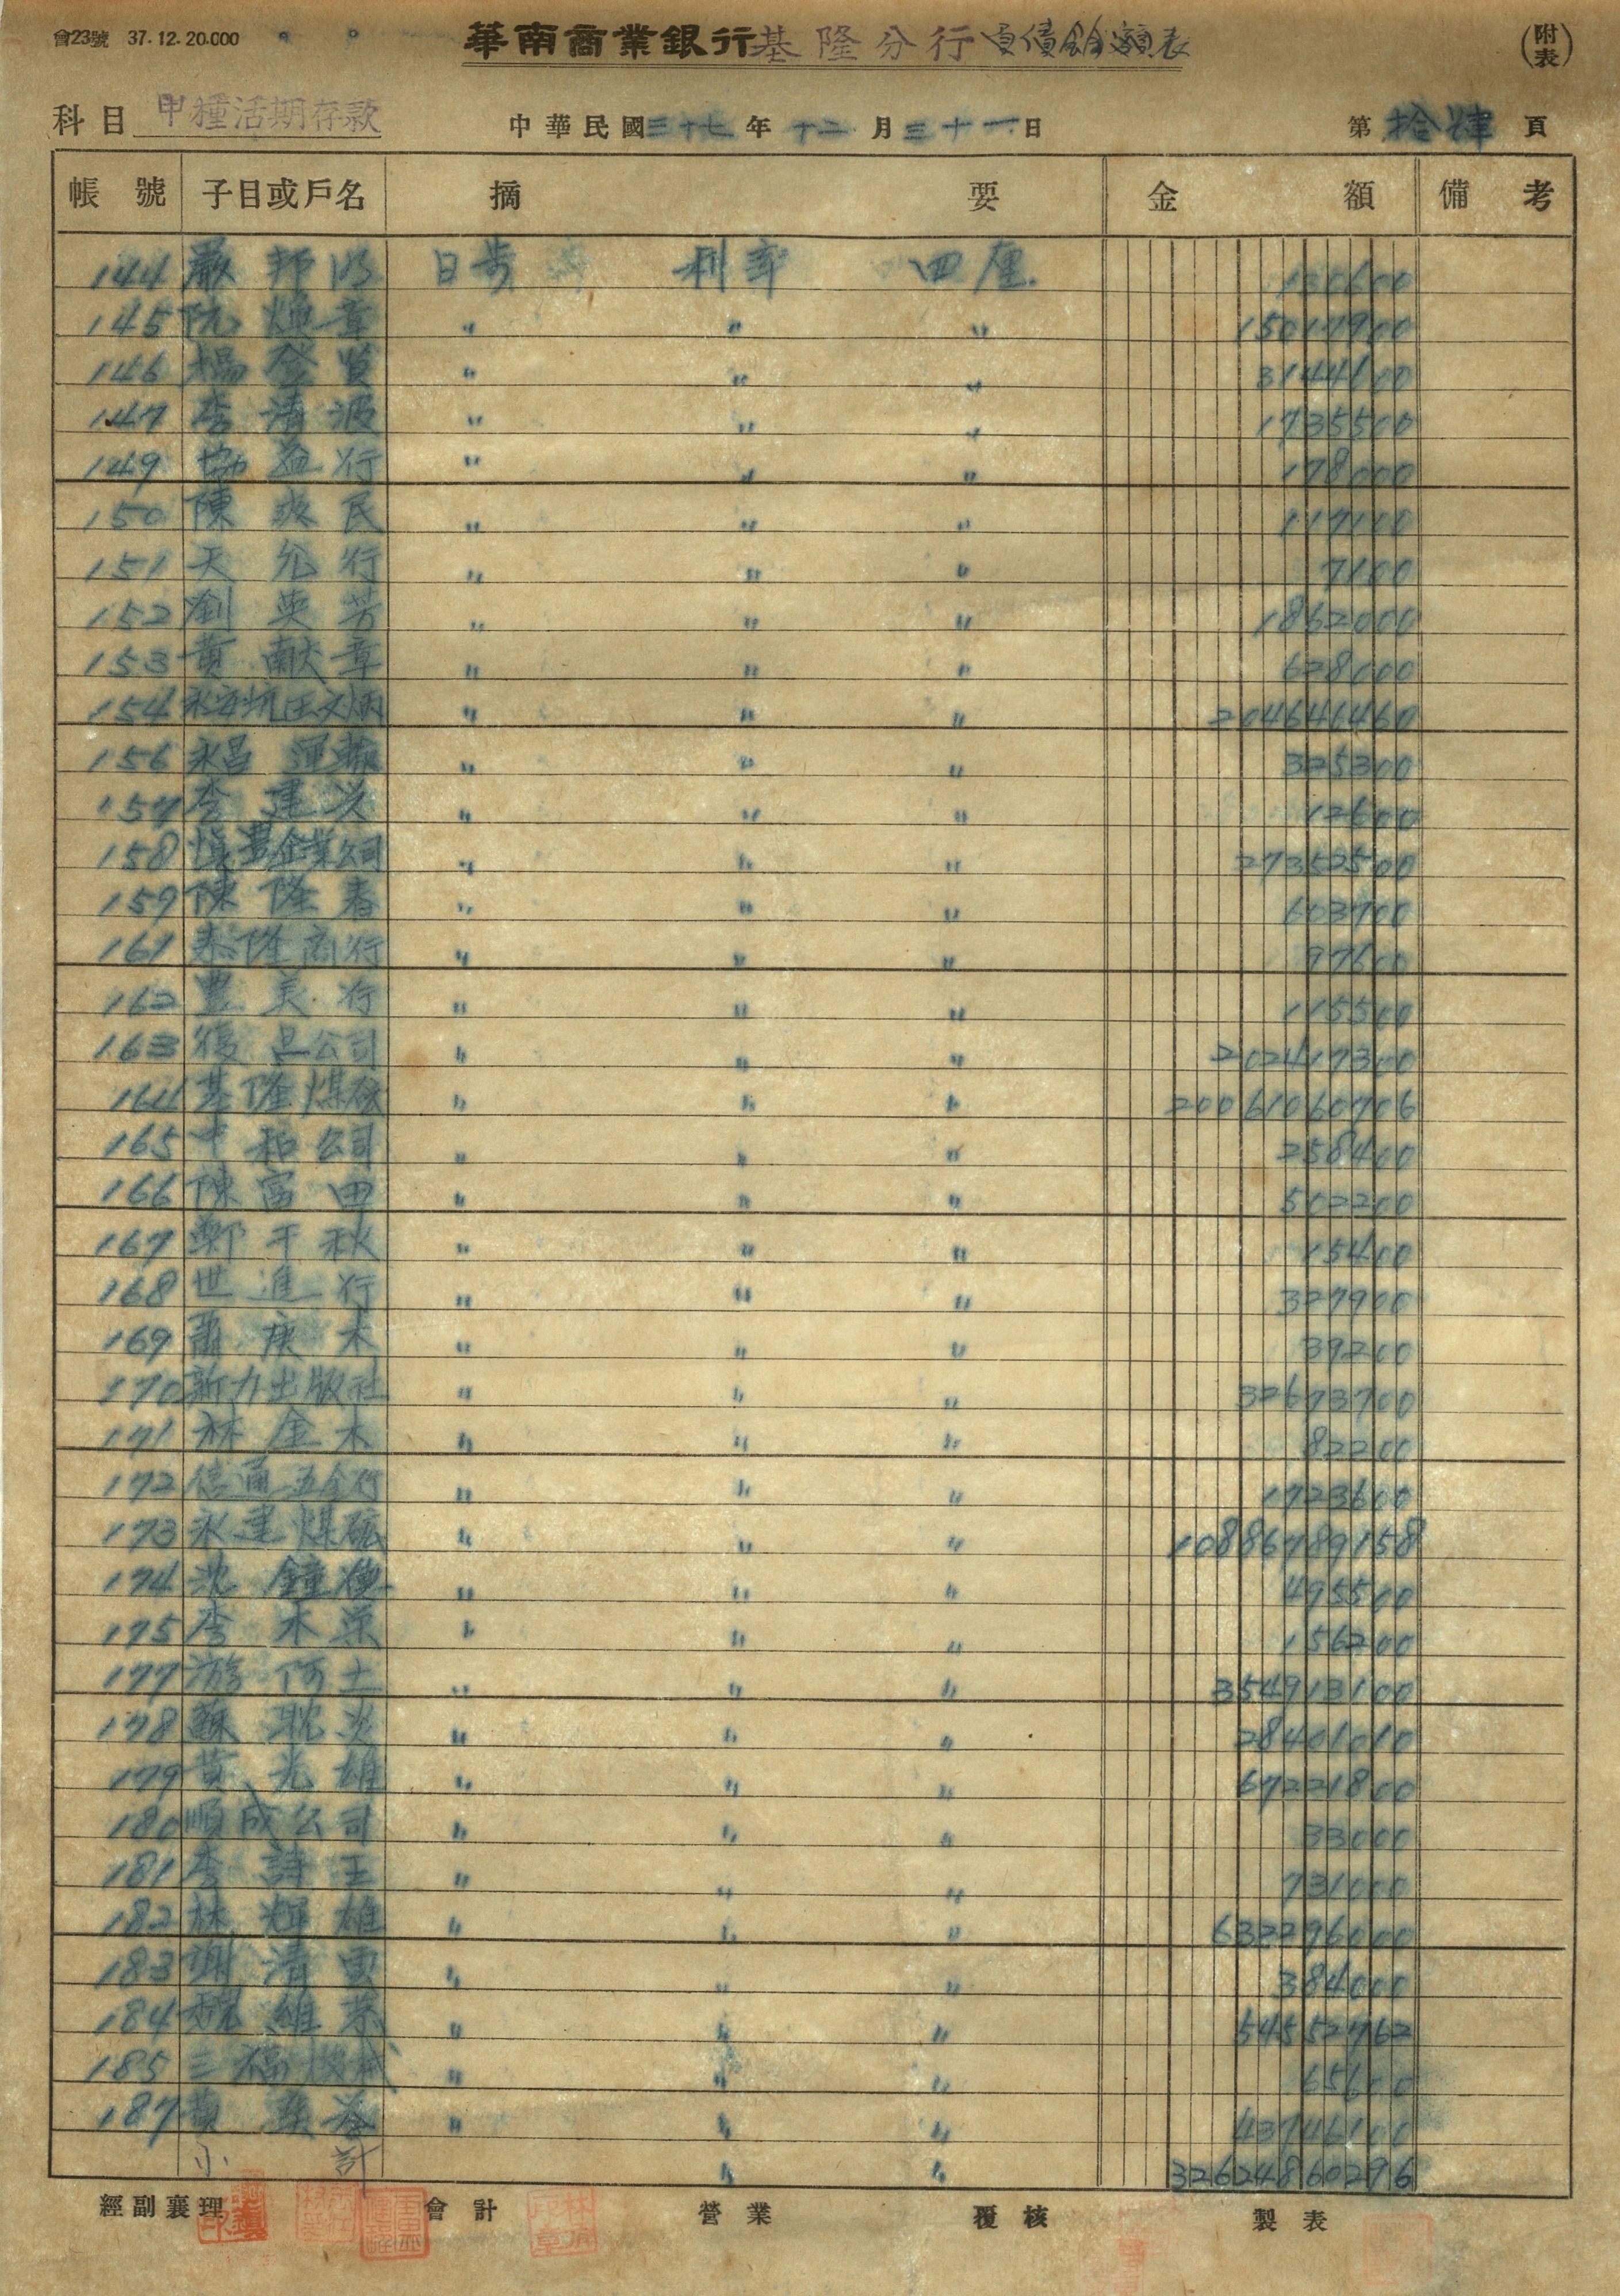 會23號 37.12.20.000
華南商業銀行基隆分行負債餘額表
(附表)
科目 甲種活期存款 中華民國三十七年十二月三十一日 第拾肆頁
帳號 子目或戶名 摘要 金額 備考
144 嚴邦 日步 利率 四厘 600
145 阮煥章 〃 〃 〃 15017900
146 楊 〃 〃 〃 3144600
147 李清波 〃 〃 〃 1735500
149 協益行 〃 〃 〃 178000
150 陳 民 〃 〃 〃 117100
151 天 行 〃 〃 〃 7100
152 劉英芳 〃 〃 〃 1862000
153 黃献章 〃 〃 〃 628000
154 永安坑王文炳 〃 〃 〃 204646460
156 永昌運輸 〃 〃 〃 325300
157 李建 〃 〃 〃 12600
158 慎豐企業公司 〃 〃 〃 27352500
159 陳隆春 〃 〃 〃 603700
161 泰隆商行 〃 〃 〃 97600
162 豊美行 〃 〃 〃 115500
163 復 公司 〃 〃 〃 202417300
164 基隆煤礦 〃 〃 〃 20061060706
165 中和公司 〃 〃 〃 258400
166 陳富田 〃 〃 〃 502200
167 鄭千秋 〃 〃 〃 15400
168 世進行 〃 〃 〃 327900
169 蕭庚木 〃 〃 〃 39200
170 新力出版社 〃 〃 〃 32673700
171 林金木 〃 〃 〃 82200
172 信通五金行 〃 〃 〃 1723600
173 永建煤礦 〃 〃 〃 10886789158
174 沈鐘 〃 〃 〃 49550
175 李木榮 〃 〃 〃 156200
177 游阿土 〃 〃 〃 354913100
178 蘇耽炎 〃 〃 〃 28401010
179 黃光雄 〃 〃 〃 67221800
180 順成公司 〃 〃 〃 33000
181 李詩王 〃 〃 〃 731000
182 林輝雄 〃 〃 〃 632296000
183 謝清雲 〃 〃 〃 384000
184 魏維 〃 〃 〃 54552762
185 三福 〃 〃 〃 65600
187 黃 〃 〃 〃 43746100
小計 〃 〃 32624860296
經副襄理 會計 營業 覆核 製表